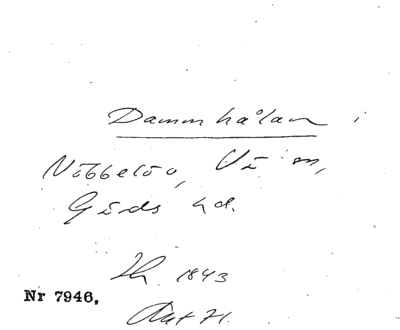 Dammhålan i
Nöbbelöv, V:a sn,
Gärds hd.
Th. 1843
Nr 7946.